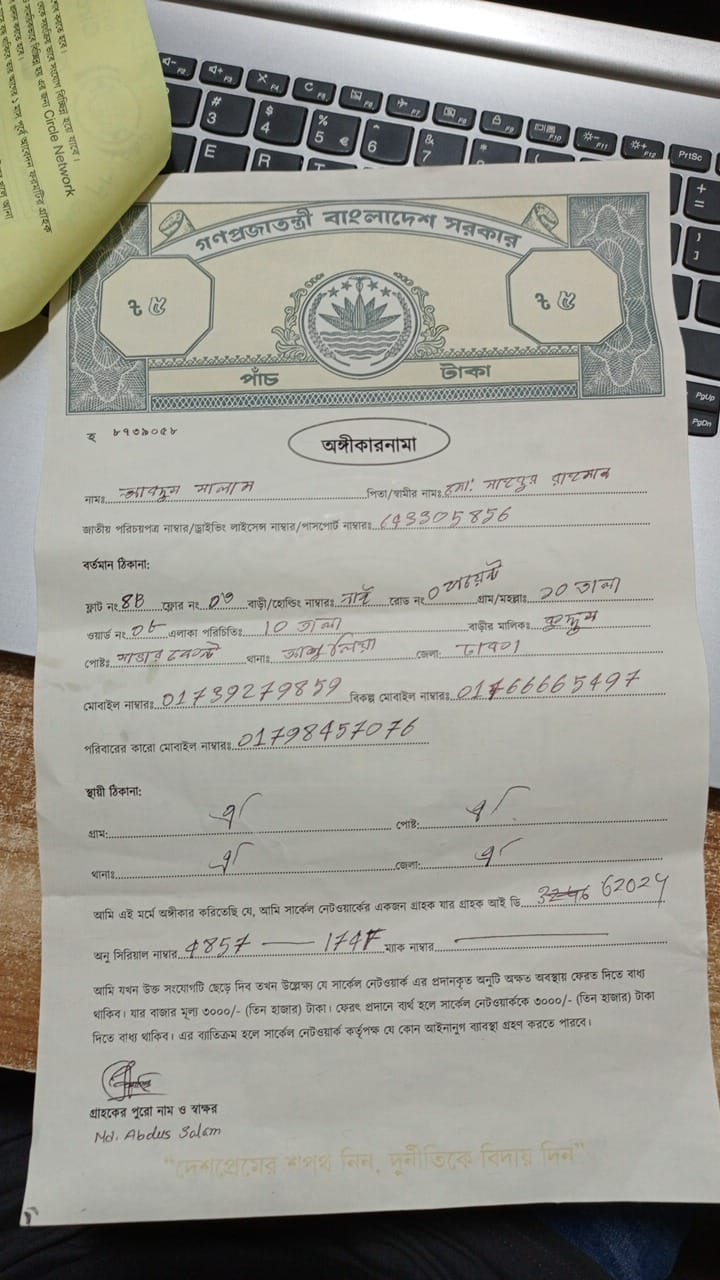 Circle Network
F2 F3 F4 F5 F6 F7 F8 F9 F10 F11 F12 PrtSc
# 3 $ 4 % 5 € 6 & 7
E R
PgUp
PgDn
গণপ্রজাতন্ত্রী বাংলাদেশ সরকার
৳ ৫ ৳ ৫
পাঁচ টাকা
হ ৮৭৩৯০৫৮
অঙ্গীকারনামা
নামঃ আবদুস সালাম পিতা/স্বামীর নামঃ মো: রহমান
জাতীয় পরিচয়পত্র নাম্বার/ড্রাইভিং লাইসেন্স নাম্বার/পাসপোর্ট নাম্বারঃ 643305856
বর্তমান ঠিকানা:
ফ্লাট নং 8B ফ্লোর নং ০৩ বাড়ী/হোল্ডিং নাম্বারঃ নাই রোড নং ০ পয়েন্ট গ্রাম/মহল্লাঃ ১০ তালা
ওয়ার্ড নং ০৮ এলাকা পরিচিতিঃ 10 তালা বাড়ীর মালিকঃ কুদ্দুস
পোষ্টঃ থানাঃ আশুলিয়া জেলা: ঢাকা
মোবাইল নাম্বারঃ 01739279859 বিকল্প মোবাইল নাম্বারঃ 01766665497
পরিবারের কারো মোবাইল নাম্বারঃ 01798457076
স্থায়ী ঠিকানা:
গ্রাম: ঐ পোষ্ট: ঐ
থানাঃ ঐ জেলা: ঐ
আমি এই মর্মে অঙ্গীকার করিতেছি যে, আমি সার্কেল নেটওয়ার্কের একজন গ্রাহক যার গ্রাহক আই ডি 62024
অনু সিরিয়াল নাম্বার 4857 — 1747 ম্যাক নাম্বার
আমি যখন উক্ত সংযোগটি ছেড়ে দিব তখন উল্লেক্ষ্য যে সার্কেল নেটওয়ার্ক এর প্রদানকৃত অনুটি অক্ষত অবস্থায় ফেরত দিতে বাধ্য
থাকিব। যার বাজার মূল্য ৩০০০/- (তিন হাজার) টাকা। ফেরৎ প্রদানে ব্যর্থ হলে সার্কেল নেটওয়ার্ককে ৩০০০/- (তিন হাজার) টাকা
দিতে বাধ্য থাকিব। এর ব্যাতিক্রম হলে সার্কেল নেটওয়ার্ক কর্তৃপক্ষ যে কোন আইনানুগ ব্যাবস্থা গ্রহণ করতে পারবে।
গ্রাহকের পুরো নাম ও স্বাক্ষর
Md. Abdus Salam
“দেশপ্রেমের শপথ নিন, দুর্নীতিকে বিদায় দিন”